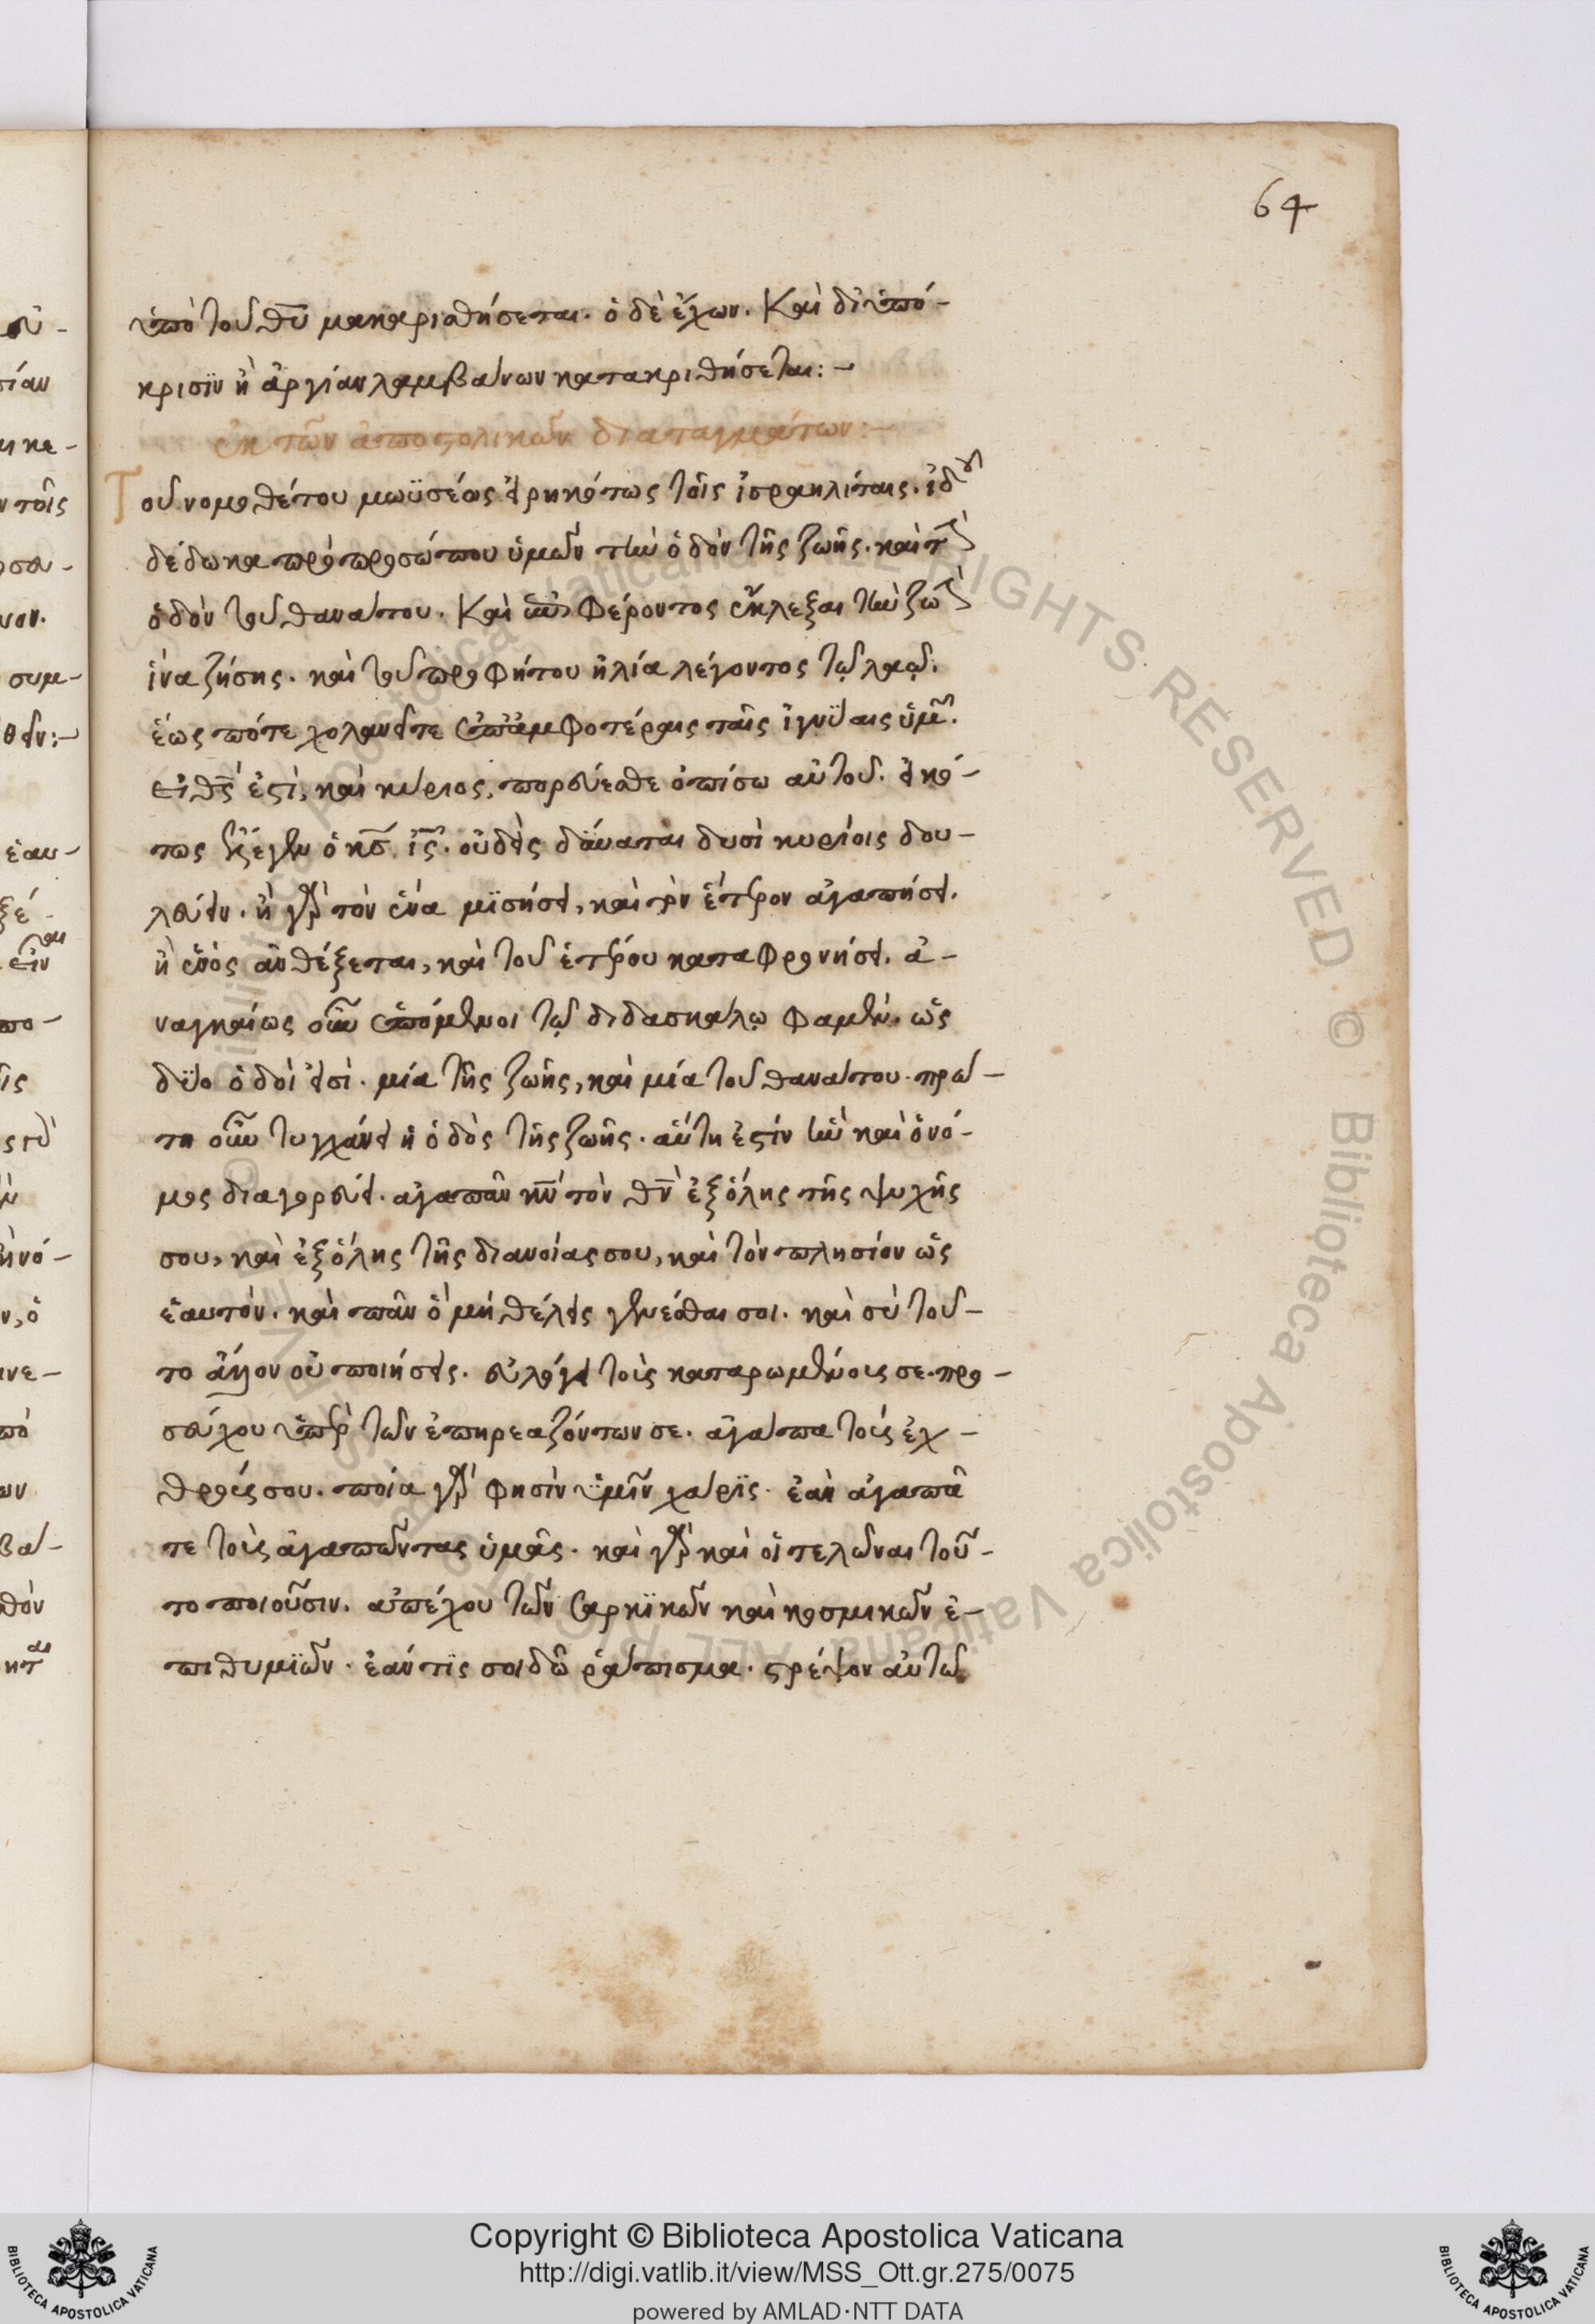 64
ὑπὸ τοῦ θῦ μακαρισθήσεται. ὁ δὲ ἔχων. Καὶ δι ὑπό-
κρισϊν ἢ ἀργίαν λαμβάνων κατακριθήσεται:-
ἐκ τῶν ἀποστολικῶν διαταγμάτων:-
Τοῦ νομοθέτου μωϋσέως εἰρηκότως τοῖς ἰσραηλίταις. ἰδοὺ
δέδωκα πρὸ προσώπου ὑμῶν τὴν ὁδὸν τῆς ζωῆς. καὶ τὴν
ὁδὸν τοῦ θανάτου. Καὶ ἐπιφέροντος ἔκλεξαι τὴν ζωὴν
ἵνα ζήσης. καὶ τοῦ προφήτου ἠλία λέγοντος τῷ λαῷ.
ἕως πότε χολανεῖτε ἐπ' ἀμφοτέραις ταῖς ἰγνύαις ὑμῶν.
εἰ θς ἐστὶ, καὶ κύριος, πορεύεσθε ὀπίσω αὐτοῦ. εἰκό-
τως ἔλεγεν ὁ κς ις. οὐδεὶς δύναται δυσὶ κυρίοις δου-
λεύειν. ἢ γὰρ τὸν ἕνα μϊσήσει, καὶ τὸν ἕτερον ἀγαπήσει.
ἢ ἑνὸς ἀνθέξεται, καὶ τοῦ ἑτέρου καταφρονήσει. ἀ-
ναγκαίως οὖν ἑπόμενοι τῷ διδασκάλῳ φαμὲν. ὡς
δύο ὁδοί εἰσὶ. μία τῆς ζωῆς, καὶ μία τοῦ θανάτου. πρώ-
τη οὖν τυγχάνει ἡ ὁδὸς τῆς ζωῆς. αὕτη ἐστίν ἣν καὶ ὁ νό-
μος διαγορεύει. ἀγαπᾶν κν τὸν θν ἐξ ὅλης τῆς ψυχῆς
σου, καὶ ἐξ ὅλης τῆς διανοίας σου, καὶ τὸν πλησίον ὡς
ἑαυτόν. καὶ πᾶν ὃ μὴ θέλεις γενέσθαι σοι. καὶ σὺ τοῦ-
το ἄλλον οὐ ποιήσεις. εὐλόγει τοὺς καταρωμένους σε. προ-
σεύχου ὑπὲρ τῶν ἐπηρεαζόντων σε. ἀγάπα τοὺς ἐχ-
θρούς σου. ποία γὰρ φησὶν ὑμῖν χάρϊς. ἐὰν ἀγαπᾶ
τε τοὺς ἀγαπῶντας ὑμᾶς. καὶ γὰρ καὶ οἱ τελῶναι τοῦ-
το ποιοῦσιν. ἀπέχου τῶν σαρκϊκῶν καὶ κοσμικῶν ἐ-
πιθυμϊῶν. ἐάν τϊς σοι δῶ ῥάπισμα. στρέψον αὐτῶ
Copyright © Biblioteca Apostolica Vaticana
http://digi.vatlib.it/view/MSS_Ott.gr.275/0075
powered by AMLAD·NTT DATA